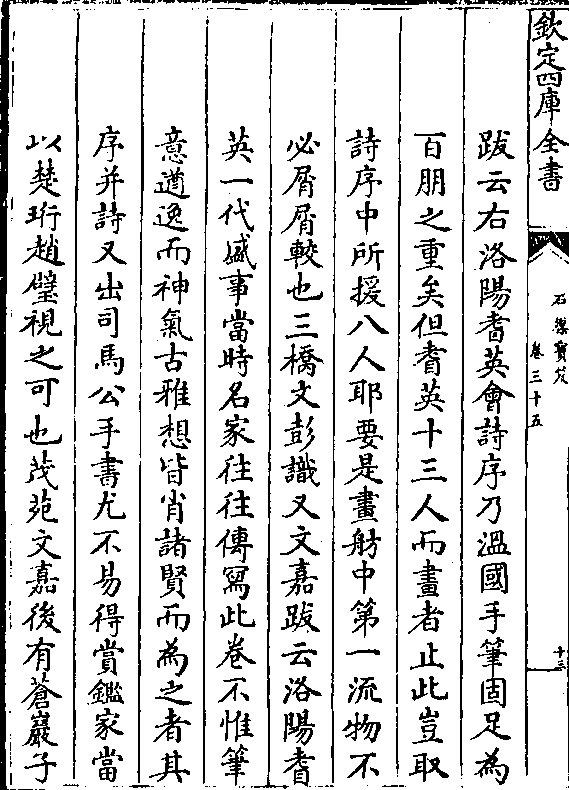 欽定四庫全書
石渠寶笈
卷三十五
十三
跋云右洛陽耆英會詩序乃溫國手筆固足為
百朋之重矣但耆英十三人而畫者止此豈取
詩序中所援八人耶要是畫舫中第一流物不
必屑屑較也三橋文彭識又文嘉跋云洛陽耆
英一代盛事當時名家往往傳寫此卷不惟筆
意遒逸而神氣古雅想皆肖諸賢而為之者其
序并詩又出司馬公手書尤不易得賞鑑家當
以楚珩趙璧視之可也茂苑文嘉後有蒼巖子